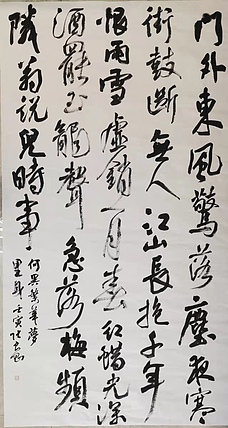 門外東風驚落塵夜寒
街鼓斷無人江山長抱千年
恨雨雪虛銷一月春紅蠟光深
酒罷玉龍聲急落梅頻
隣翁說兒時事
何異華胥夢
里身壬寅